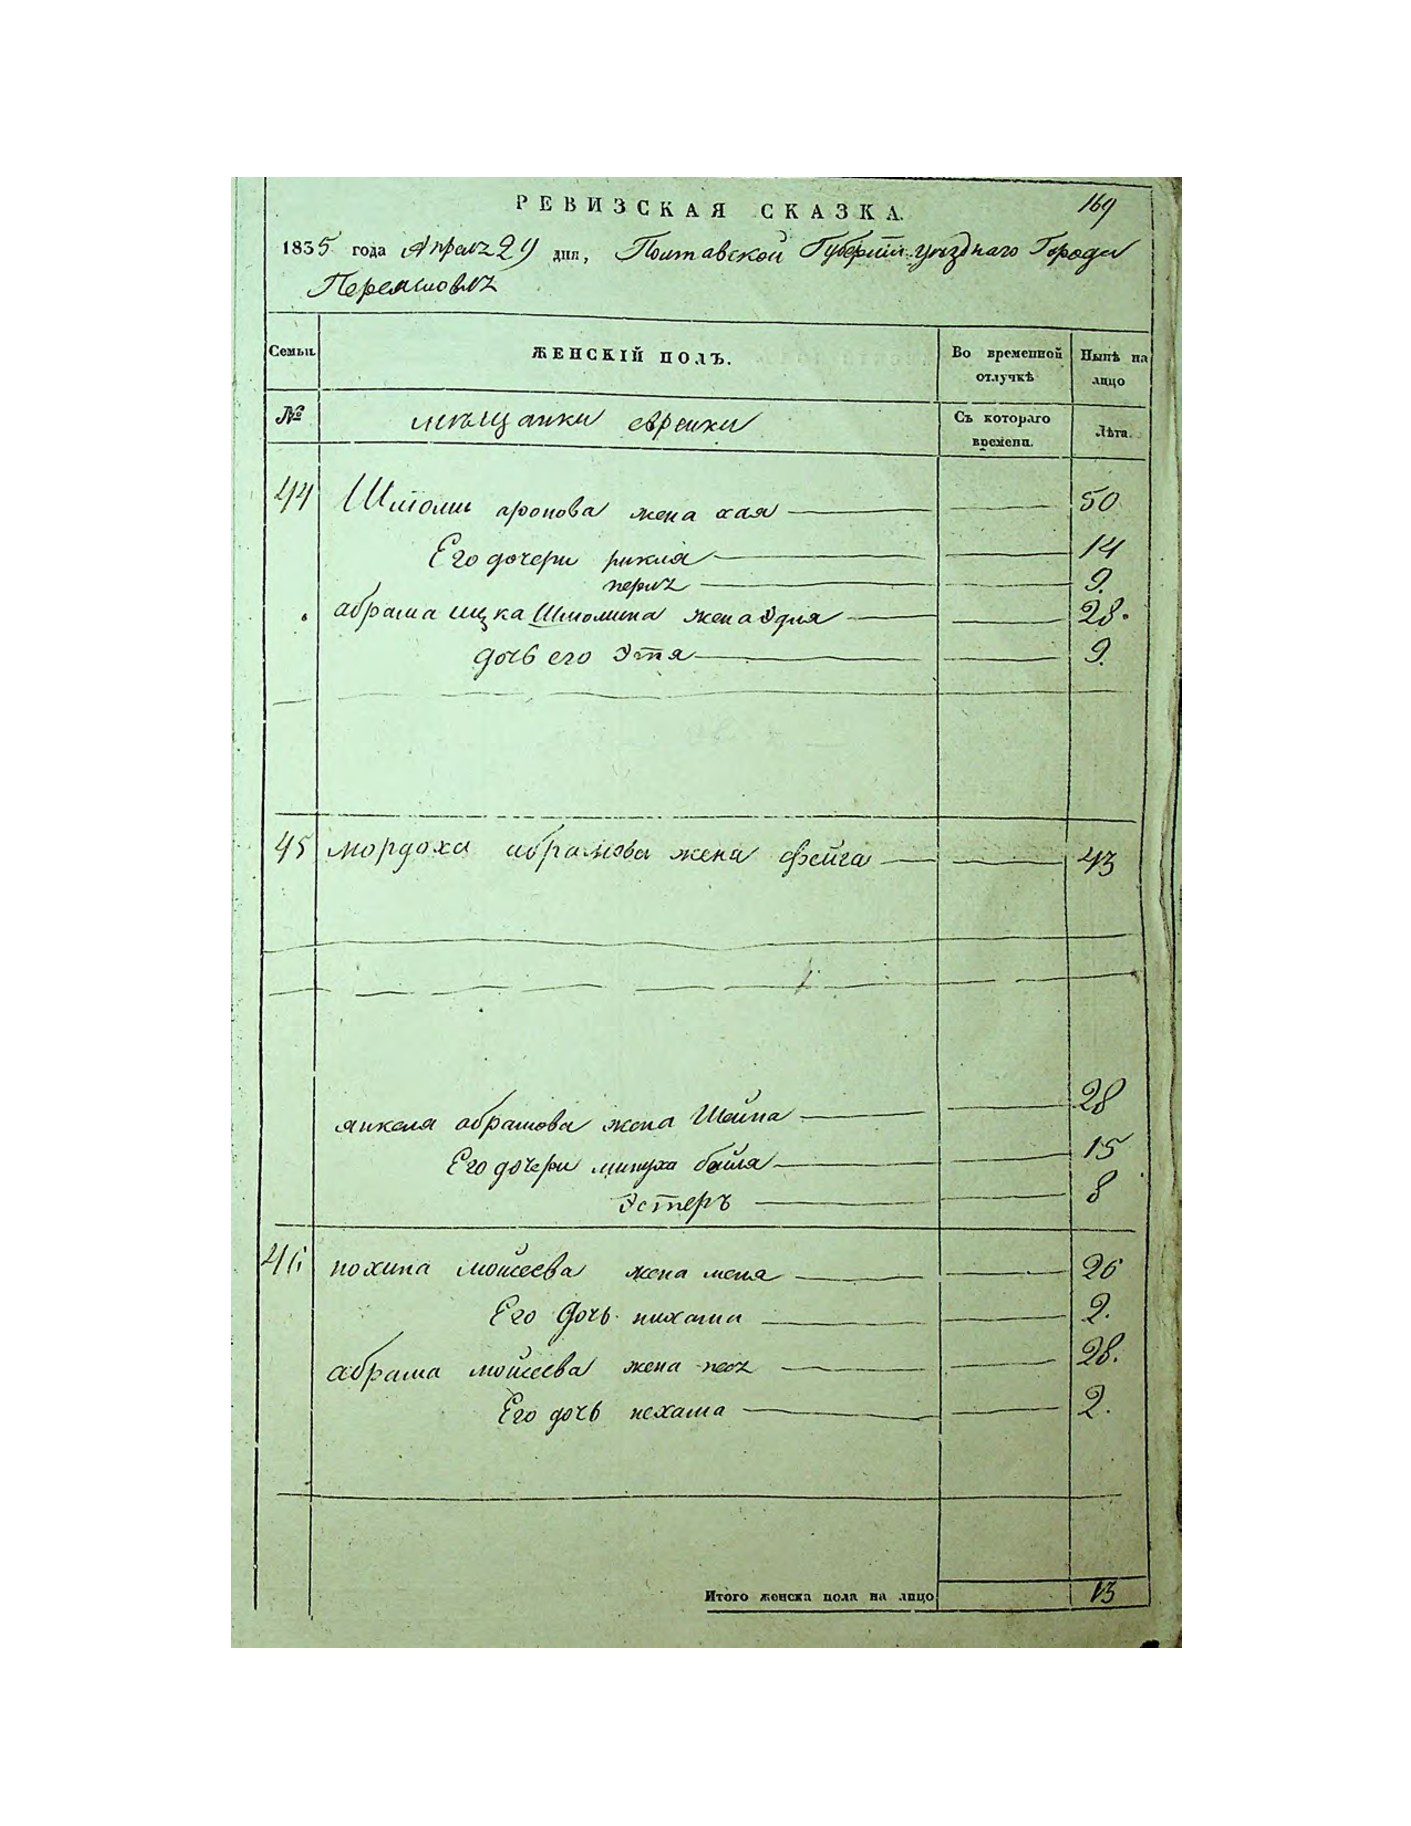 РЕВИЗСКАЯ СКАЗКА. 169
1835 года Апреля 29 дня, Полтавской Губернии уезднаго Города
Переяславля
Семьи. ЖЕНСКІЙ ПОЛЪ. Во временной отлучкѣ Нынѣ на лицо
№ мѣщанки евреики Съ котораго времени. Лѣта.
44 Шліомы аронова жена хая 50
Его дочери рикля 14
перля 9.
абрама ицка Шлиомина жена Эдля 28.
дочь его Этя 9.
45 мордоха абрамова жена фейга 43
янкеля абрамова жена Шейна 28
Его дочери минуха бейля 15
Эстеръ 8
46 нохима моисеева жена меня 26
Его дочь нихама 2.
абрама моисеева жена песя 28.
Его дочь нехама 2.
Итого женска пола на лицо 13